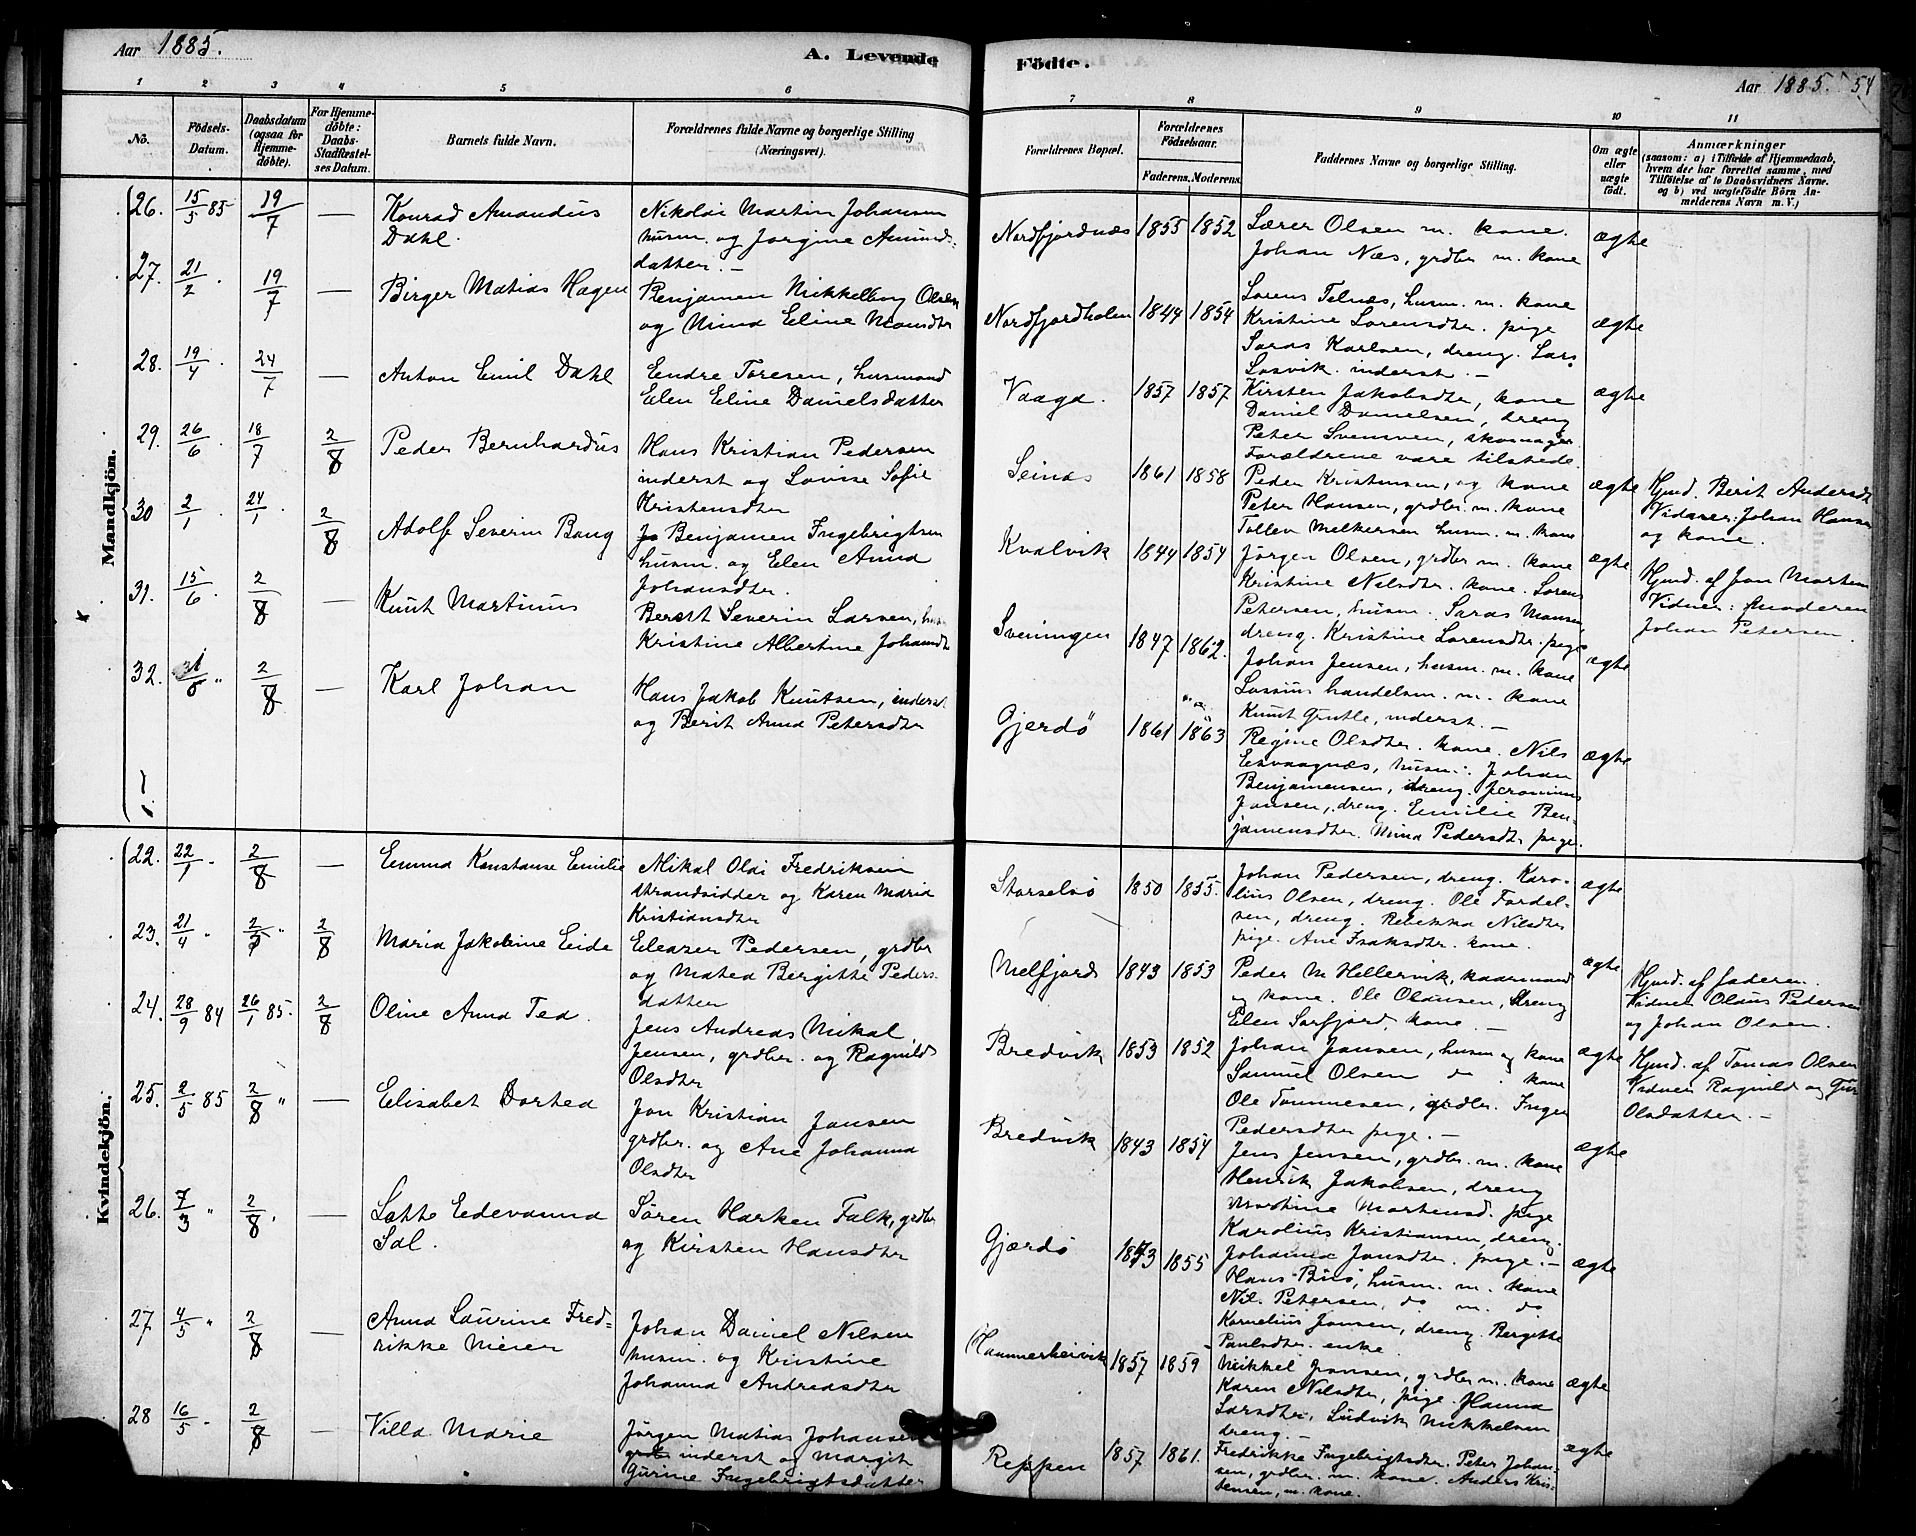 Aar 1885.
A. Levende
Födte.
Aar 1885. 54
1 2 3 4 5 6 7 8 9 10 11
No.
Födsels-
Datum.
Daabsdatum
(ogsaa for
Hjemme-
döbte).
For Hjemme-
döbte:
Daabs-
Stadfæstel-
ses Datum.
Barnets fulde Navn.
Forældrenes fulde Navne og borgerlige Stilling
(Næringsvei).
Forældrenes Bopæl.
Forældrenes
Födselsaar.
Faderens. Moderens.
Faddernes Navne og borgerlige Stilling.
Om ægte
eller
uægte
födt.
Anmærkninger
(saasom: a) i Tilfælde af Hjemmedaab,
hvem der har forrettet samme, med
Tilföielse af to Daabsvidners Navne.
og b) ved uægtefödte Börn An-
melderens Navn m. V.)
Mandkjön.
26. 15/5 85 19/7 — Konrad Amandus
Dahl.
Nikolai Martin Johansen
husm. og Jorgine Amunds-
datter. —
Nordfjordnæs 1855 1852
Lærer Olsen m. kone.
Johan Næs, grdbr m. kone
ægte
27. 21/2 . 19/7 — Birger Matias Hagen
Benjamen Mikkelborg Olsen
og Mina Eline Monsdtr
Nordfjordholen 1844 1854
Lorens Telnæs, husm. m. kone
Kristine Lorensdtr. pige
Saras Karlsen, dreng. Lars
Losvik. inderst. —
ægte
28. 19/4 . 24/7 — Anton Emil Dahl
Endre Toresen, husmand
Elen Eline Danielsdatter
Vaaga. 1857 1857
Kirsten Jakobsdtr, kone
Daniel Danielsen, dreng
Peter Svensven, skomager.
Forældrene vare tilstede.
ægte
29. 26/6 . 18/7 2/8 Peder Bernhardus
Hans Kristian Pedersen
inderst og Lovise Sofie
Kristensdtr
Seinæs 1861 1858
Peder Kristensen, og kone
Peter Hansen, grdbr. m. kone
Tollev Melkersen husm. m. kone
ægte
Hjmd. Berit Andersdt
Vidner: Johan Hansen
og kone.
30 2/1 . 24/1 . 2/8 Adolf Severin Bang
Benjamen Ingebrigtsen
husm. og Elen Anna
Johansdtr.
Kvalvik 1844 1854
Jörgen Olsen, grdbr m. kone
Kristine Nilsdtr. kone. Lorens
Petersen, husm. Saras Monsen,
dreng. Kristine Lorensdtr. pige
ægte
Hjmd. af Jon Morten
Vidner: Moderen
Johan Petersen.
31. 15/6 . 2/8 — Knut Martinus
Berett Severin Larsen,
Kristine Albertine Johansdt
Sveningen 1847 1862.
Johan Jensen, husm. m. kone
Lossius handelsm. m. kone
Knut Grutle, inderst. —
ægte
32. „ 2/8 — Karl Johan
Hans Jakob Knutsen, inderst
og Berit Anna Petersdtr
Gjerdö 1861 1863
Regine Olsdtr. kone. Nils
Esvaagnæs, husm. Johan
Benjamensen, dreng. Jeronimus
Jonsen, dreng. Emilie Ben-
jamensdtr. Mina Pedersdtr pige.
ægte
Kvindekjön.
22. 22/1 „ 2/8 — Emma Konstanse Emilie
Mikal Olai Fredriksen
strandsidder og Karen Maria
Kristiansdtr
Storselsö 1850 1855.
Johan Pedersen, dreng. Karo-
lius Olsen, dreng. Ole Fordel-
sen, dreng. Rebekka Nilsdtr
pige. Ane Isaksdtr. kone.
ægte
23. 21/4 „ „ 2/8 Maria Jakobine Eide
Eleazer Pedersen, grdbr
og Matea Bergitte Peders-
datter
Melfjord 1843 1853
Peder M Hellervik, kaarmand
og kone. Ole Olausen, dreng
Elen Sørfjord, kone. —
ægte
Hjmd. af faderen.
Vidner Olaus Pedersen
og Johan Olsen.
24. 28/9 84 26/1 85. 2/8 Oline Anna Tea.
Jens Andreas Mikal
Jensen, grdbr. og Ragnild
Olsdtr
Bredvik 1853 1852
Johan Jansen, husm og kone
Samuel Olsen do . kone
Ole Tommesen, grdbr. Inger
Pedersdtr pige. —
ægte
Hjmd. af Tomas Olsen
Vidner Ragnild og Gur
Olsdatter. —
25. 2/5 85 2/8 „ — Elisabet Dortea
Jon Kristian Jansen
grdbr. og Ane Johanna
Olsdtr
Bredvik 1843 1854
Jens Jensen, grdbr. m. kone
Henrik Jakobsen, dreng
Martine Mortensd. pige
Karolius Kristiansen, dreng.
Johanna Jonsdtr. pige. —
ægte
26. 7/3 „ 2/8 . — Lotte Edevanna
Sal.
Sören Harken Falk, grdbr
og Kirsten Hansdtr
Gjærdö 1855
Hans Buö, husm. m. kone
Nil. Petersen, do m. do
Kornelius Jonsen, dreng. Bergitte
Paulsdtr. enke.
ægte
27 4/5 „ 2/8 — Anna Laurine Fred=
rikke Meier
Johan Daniel Nilsen
husm. og Kristine
Johanna Andreasdtr
Hammerheivik 1857 1859
Mikkel Jonsen, grdbr m. kone
Karen Nilsdtr, pige. Hanna
Larsdtr. Ludvik Mikkelsen
dreng. —
ægte
28 16/5 . 2/8 — Villa Marie
Jörgen Matias Johansen
inderst og Margit
Gurine Ingebrigtsdatter
Reppen 1857 1861.
Fredrikke Ingebrigtsdtr. Peter Johan-
sen, grdbr. m. kone. Anders Kris-
tensen, m. kone.
ægte